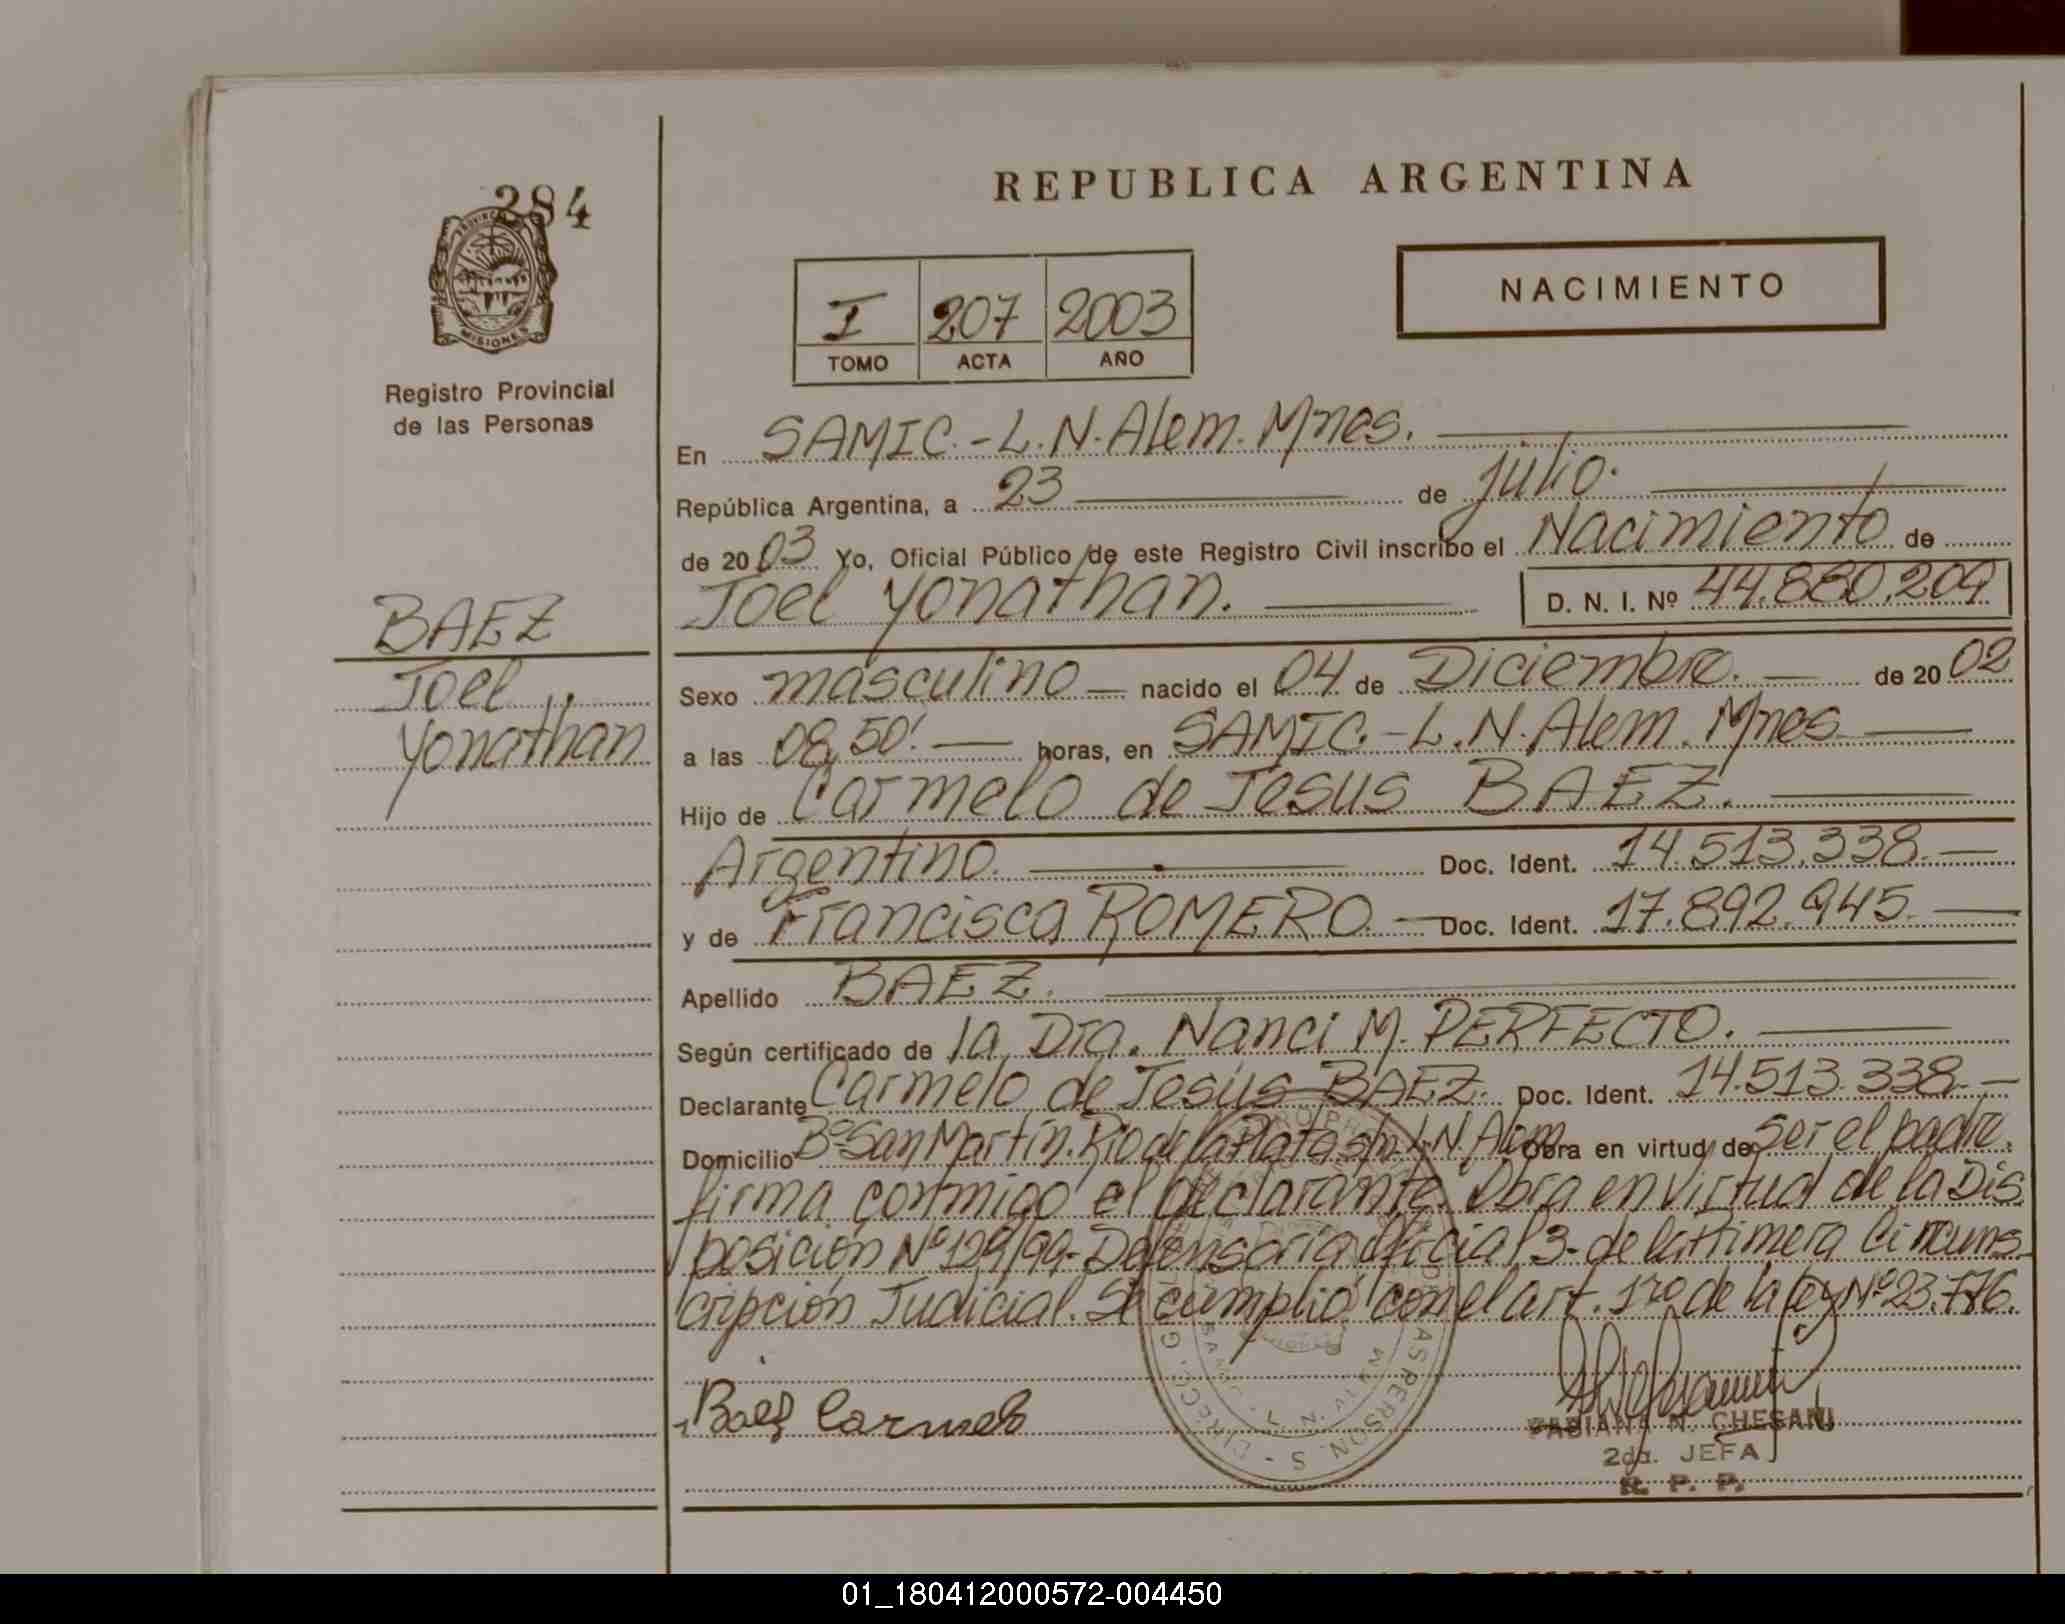 284
PROVINCIA
MISIONES
Registro Provincial
de las Personas
REPUBLICA ARGENTINA
I 207 2003
TOMO ACTA AÑO
NACIMIENTO
En SAMIC.-L.N.Alem.Mnes.
República Argentina, a 23 de julio.
de 2003 Yo, Oficial Público de este Registro Civil inscribo el Nacimiento de
Joel Yonathan. D. N. I. Nº 44.880.209
BAEZ
Joel
Yonathan
Sexo masculino nacido el 04 de Diciembre. de 2002
a las 08,50'. horas, en SAMIC.-L.N.Alem.Mnes
Hijo de Carmelo de Jesus BAEZ.
Argentino. Doc. Ident. 14.513.338.
y de Francisca ROMERO. Doc. Ident. 17.892.945.
Apellido BAEZ.
Según certificado de la Dra. Nanci M. PERFECTO.
Declarante Carmelo de Jesús BAEZ. Doc. Ident. 14.513.338.
Domicilio Bº San Martín. Rio de la Plata s/n. L.N. Alem Obra en virtud de ser el padre.
firma conmigo el declarante. Obra en virtud de la Dis
posición Nº 129/99- Defensoría Oficial 3- de la Primera Circuns
cripción Judicial. Se cumplió con el art. 1ro de la ley Nº 23.776.
Baez Carmelo
FABIANA N. CHESANI
2da. JEFA
R. P. P.
01_180412000572-004450